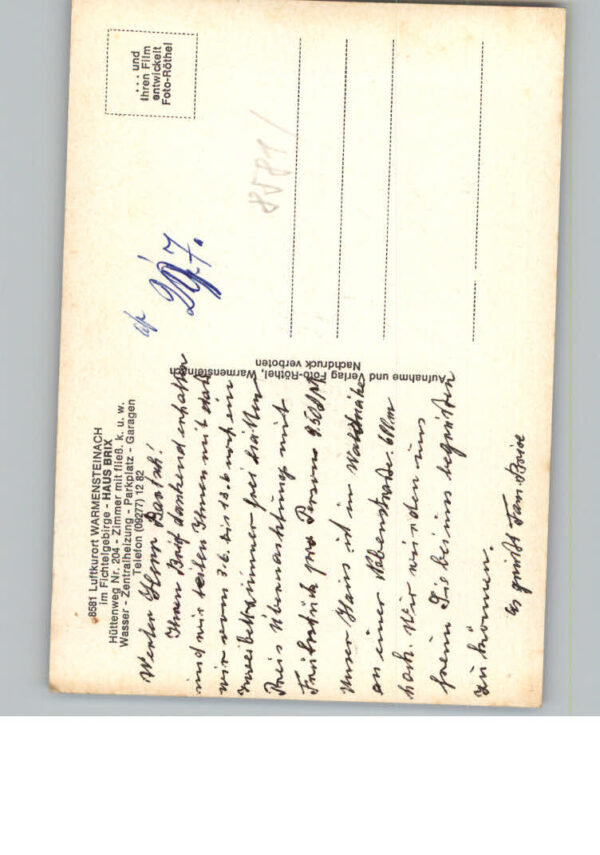 8581 Luftkurort WARMENSTEINACH
im Fichtelgebirge - HAUS BRIX
Hüttenweg Nr. 204 - Zimmer mit fließ. k. u. w.
Wasser - Zentralheizung - Parkplatz - Garagen
Telefon (09277) 12 82
Werter Herr
Ihren Brief dankend erhalten
und wir teilen Ihnen mit daß
wir vom 3.6. bis 13.6 noch ein
Zweibettzimmer frei hätten
Preis Übernachtung mit
Frühstück pro Person 9.50 DM
Unser Haus ist in Waldnähe
an einer Nebenstraße.
Wir würden uns
freuen Sie bei uns begrüßen
zu können.
Es grüßt Fam. Brix
Aufnahme und Verlag Foto-Röthel, Warmensteinach
Nachdruck verboten
... und
Ihren Film
entwickelt
Foto-Röthel
8581/